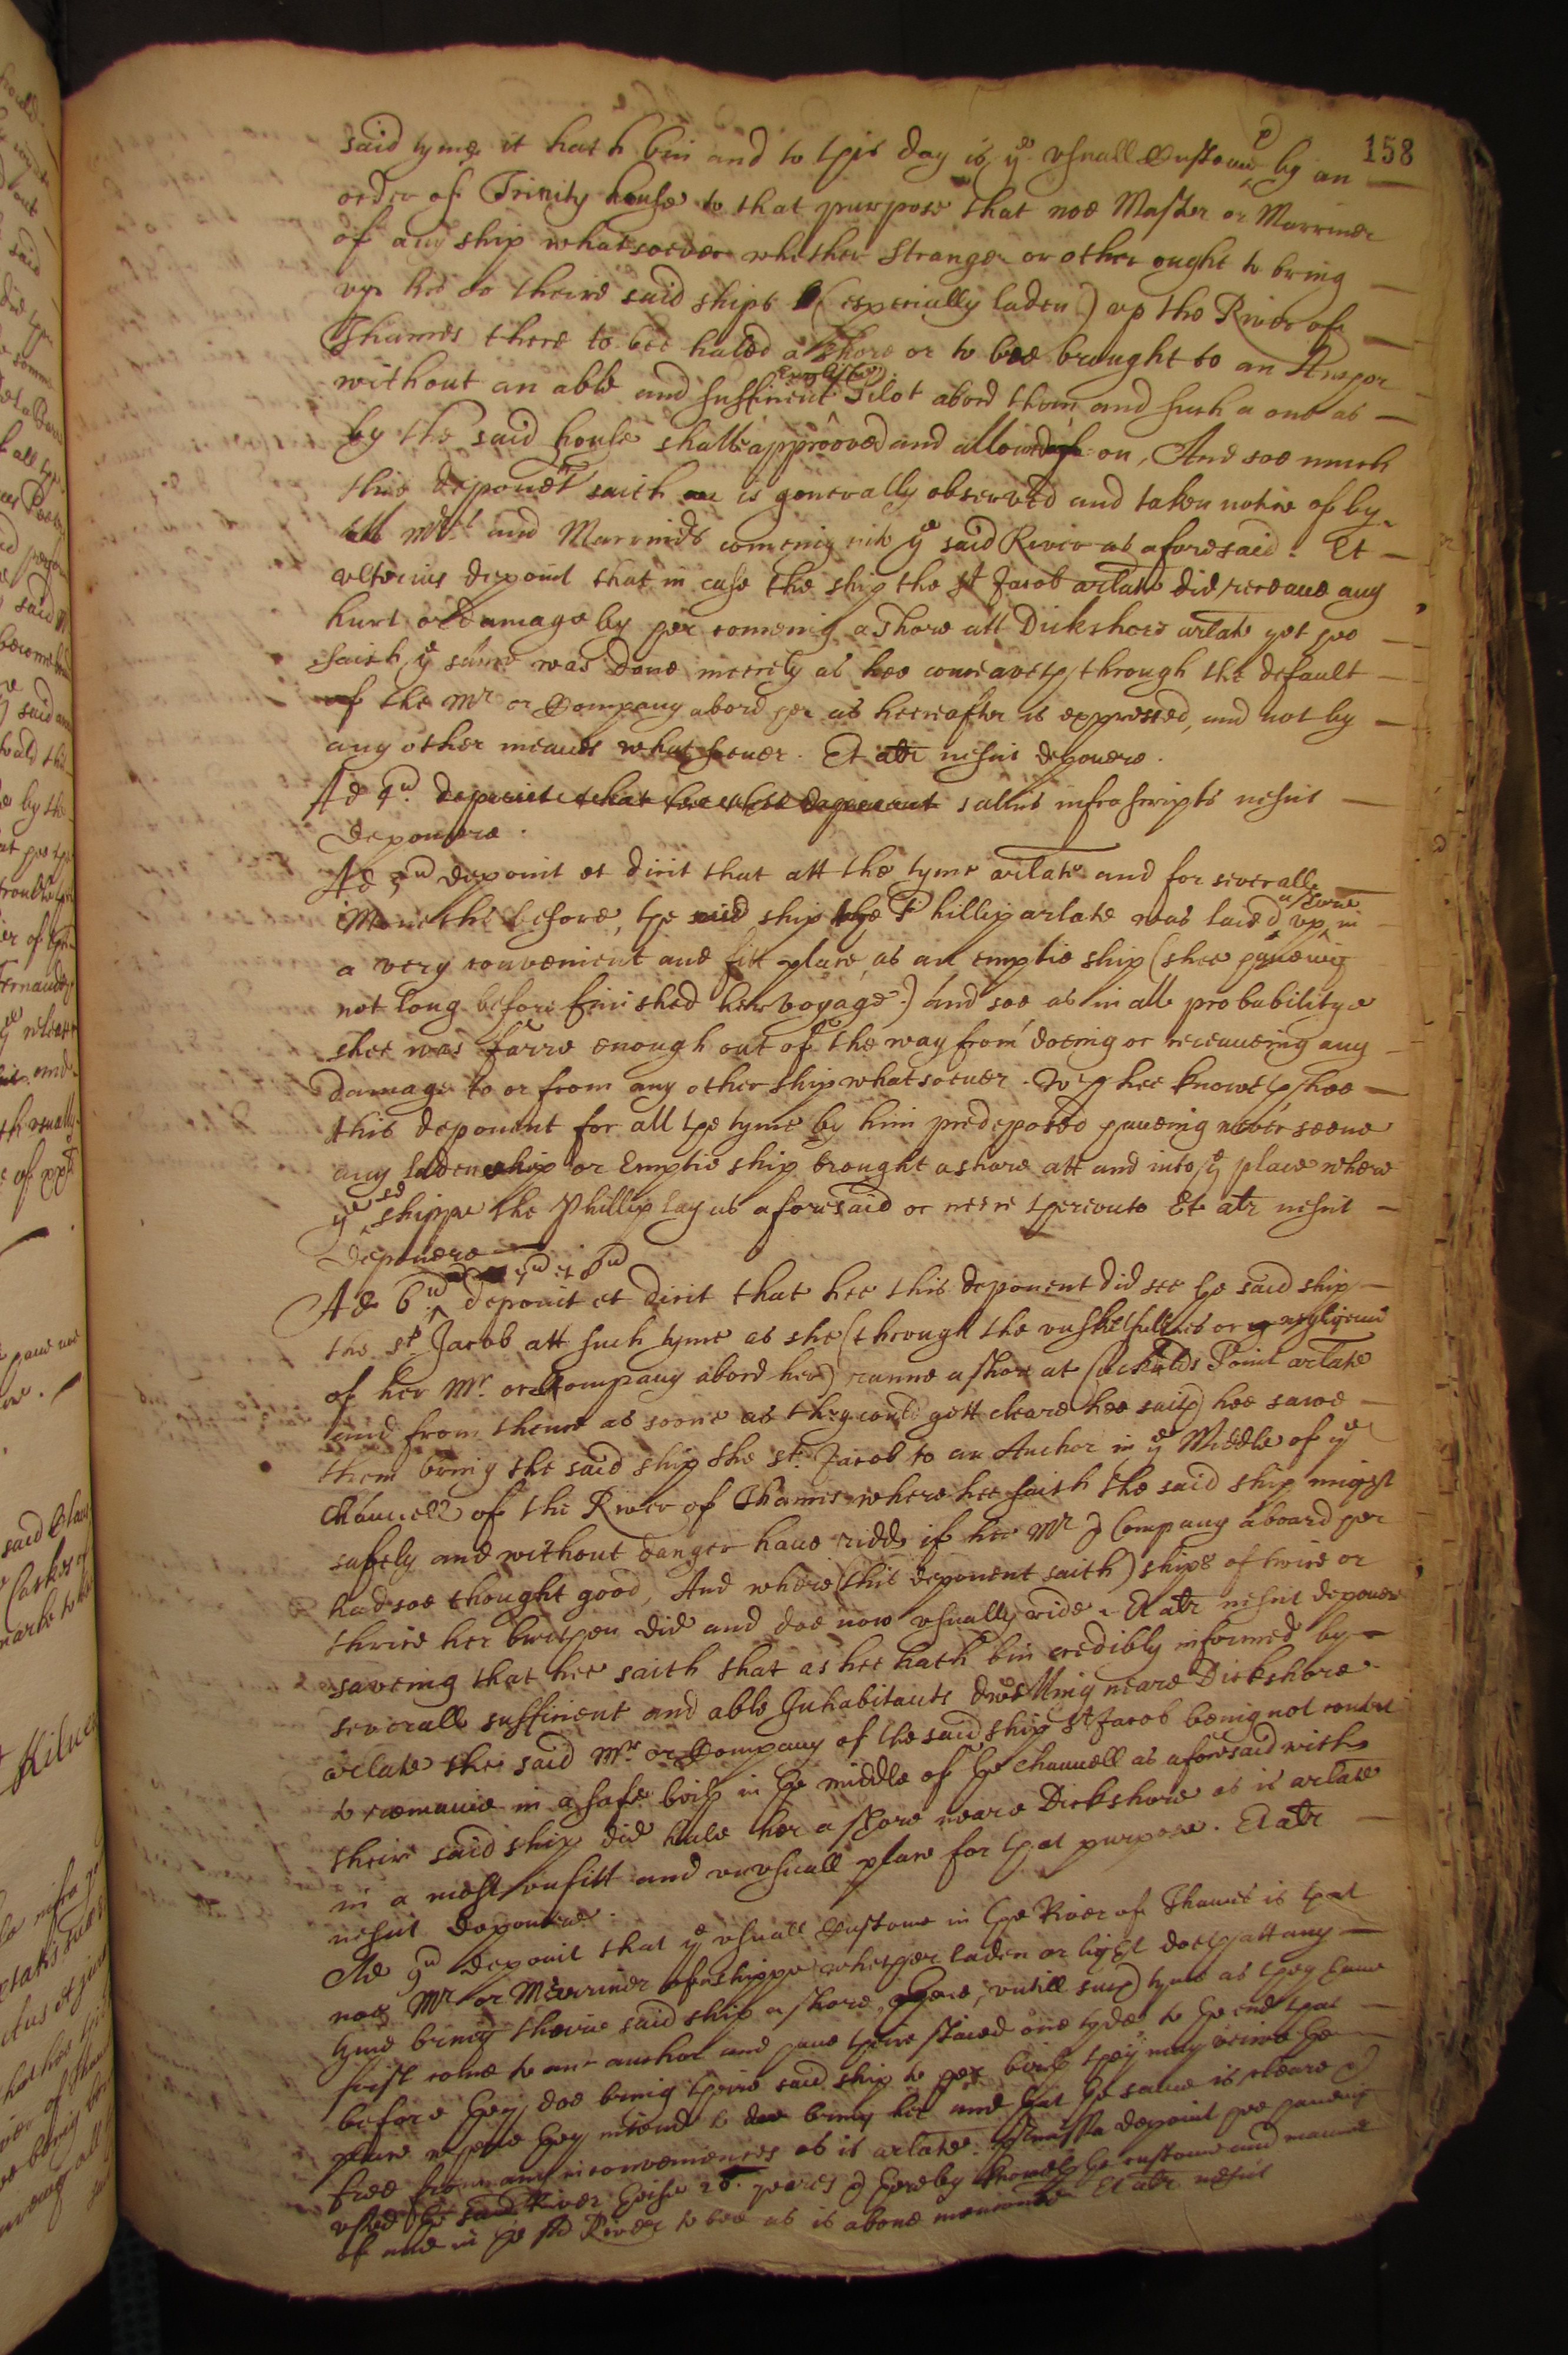 158
said tyme it hath bin and to this day is ye vsuall Custome by an
order of Trinity house to that purpose that noe Master or Marriner
of any ship whatsoever whether Stranger or other ought to bring
theire said ships (especially laden) vp the River of
Thames there to bee haled a shore or to bee brought to an Anchor
without an able and sufficient English Pilot abord them and such a one as
by the said house shalbe approoved and allowed on, And soe much
this deponent saith is generally observed and taken notice of by
all Mrs and Marriners comeing into ye said River as aforesaid. Et
vlterius deponit that in case the ship the St Jacob arlate did receaue any
hurt or damage by her comeing a shore att Dickshore arlate yet hee
saith ye same was done meerely as hee conceaveth through the default
of the Mr or Company abord her as heereafter is expressed, and not by
any other meanes whatsoeuer. Et alr nescit deponere.
Ad 4um deponit that hee this deponent saluis infrascriptis nescit
deponere.
Ad 5um deponit et dicit that att the tyme arlate and for severall
Moneths before, the said ship the Phillip arlate was laied vp ashore in
a very convenient and fitt place, as an emptie ship (shee haueing
not long before finished her voyage) and soe as in all probabilitye
shee was farre enough out of the way from doeing or receaueing any
damage to or from any other ship whatsoeuer. Wch hee knoweth hee
this deponent for all the tyme by him predeposed haueing never seene
any laden ship or emptie ship brought ashore att and into ye place where
ye sd shippe the Phillip lay as aforesaid or neere thereunto Et alr nescit
deponere
Ad 6um 7um et 8um deponit et dicit that hee this deponent did see the said ship
the St Jacob att such tyme as she (through the vnskilfullnes or negligence
of her Mr or Company abord her) runne a shore at Cuckolds Point arlate
and from thence as soone as they could gett cleare hee saith hee sawe
them bring the said ship the St Jacob to an Anchor in ye Middle of ye
Channell of the River of Thames where hee saith the said ship might
safely and without danger haue ridd if her Mr & Company aboard her
had soe thought good, And where (this deponent saith) ships of twice or
thrice her burthen did and doe now vsually ride. Et alr nescit deponere
saveing that hee saith that as hee hath bin credibly informed by
severall sufficient and able Inhabitants dwelling neare Dickshore
arlate the said Mr or Company of the said ship St Jacob being not content
to remaine in a safe birth in the middle of the channell as aforesaid with
their said ship did hale her a shore neare Dickshore as is arlate
in a most vnfitt and vnvsuall place for that purpose. Et alr
nescit deponere.
Ad 9um deponit that ye vsuall Custome in the River of Thames is that
noe Mr or Marriner of a shippe whether laden or light doeth att any
tyme bring theire said ship a shore there, vntill such tyme as they haue
first come to an anchor and haue there staied one tyde to the end that
before they doe bring theire said ship to her birth they may veiwe the
place where they intend to bring her and that the same is cleare &
free from any inconveniences as is arlate. deponit hee haueing
vsed the said River theise 28. yeares & thereby knoweth the custome and manner
of and in the sd River to bee as is aboue mencioned Et alr nescit